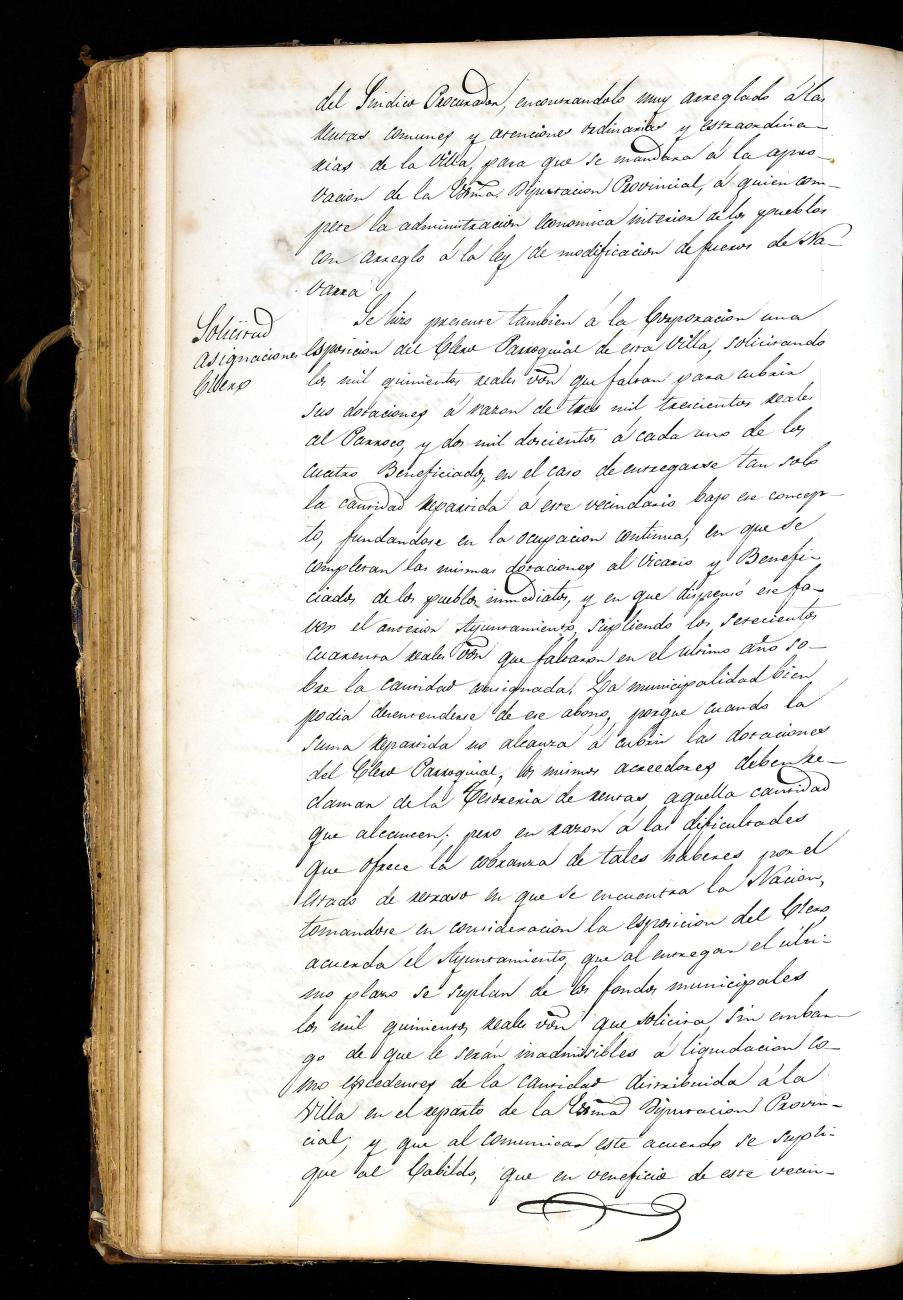 del Sindico Procurador, encontrandolo muy arreglado á las
rentas comunes y atenciones ordinarias y estraordina-
rias de la Villa, para que se mandara á la apro-
vacion de la Exma. Diputacion Provincial, á quien com-
pete la administracion economica interior de los pueblos
con arreglo á la ley de modificacion de fueros de Na-
varra
Solicitud
asignaciones
Clero
Se hizo presente tambien á la Corporacion una
esposicion del Clero Parroquial de esta Villa, solicitando
los mil quinientos reales von que faltan para cubrir
sus dotaciones á razon de tres mil trescientos reales
al Parroco, y dos mil doscientos á cada uno de los
cuatro Beneficiados, en el caso de entregarse tan solo
la cantidad repartida á este vecindario bajo ese concep-
to, fundandose en la ocupacion continua, en que se
completan las mismas dotaciones al Vicario y Benefi-
ciados de los pueblos inmediatos, y en que dispensó ese fa-
vor el anterior Ayuntamiento, supliendo los setecientos
cuarenta reales von que faltaron en el ultimo año so-
bre la cantidad asignada. La municipalidad bien
podia desentenderse de ese abono, porque cuando la
suma repartida no alcanza á cubrir las dotaciones
del Clero Parroquial, los mismos acreedores deben re-
clamar de la Tesoreria de rentas, aquella cantidad
que alcancen; pero en razon á las dificultades
que ofrece la cobranza de tales haberes por el
estado de retraso en que se encuentra la Nacion,
tomandose en consideracion la esposicion del Clero,
acuerda el Ayuntamiento, que al entregar el ulti-
mo plazo se suplan de los fondos municipales
los mil quinientos reales von que solicita, sin embar-
go de que le serán inadmisibles á liquidacion co-
mo escedentes de la cantidad distribuida á la
Villa en el reparto de la Exma Diputacion Provin-
cial; y que al comunicar este acuerdo se supli-
que al Cabildo, que en veneficio de este vecin-